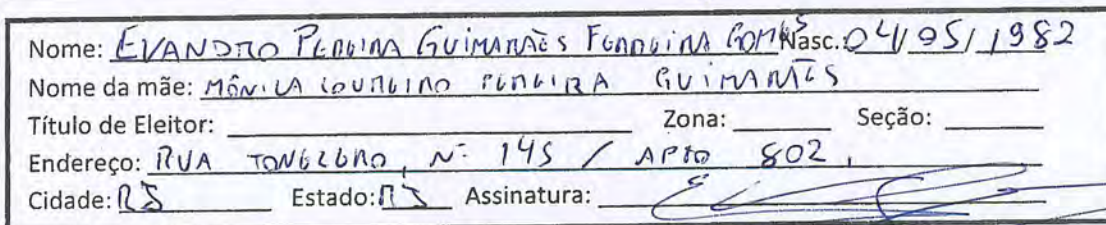 Nome: EVANDRO PEREIRA GUIMARÃES FERREIRA GOMES Nasc.: 04/05/1982
Nome da mãe: MÔNICA LOUREIRO PEREIRA GUIMARÃES
Título de Eleitor: Zona: Seção:
Endereço: RUA TONELERO, Nº 145 / APTO 802,
Cidade: RJ Estado: RJ Assinatura: